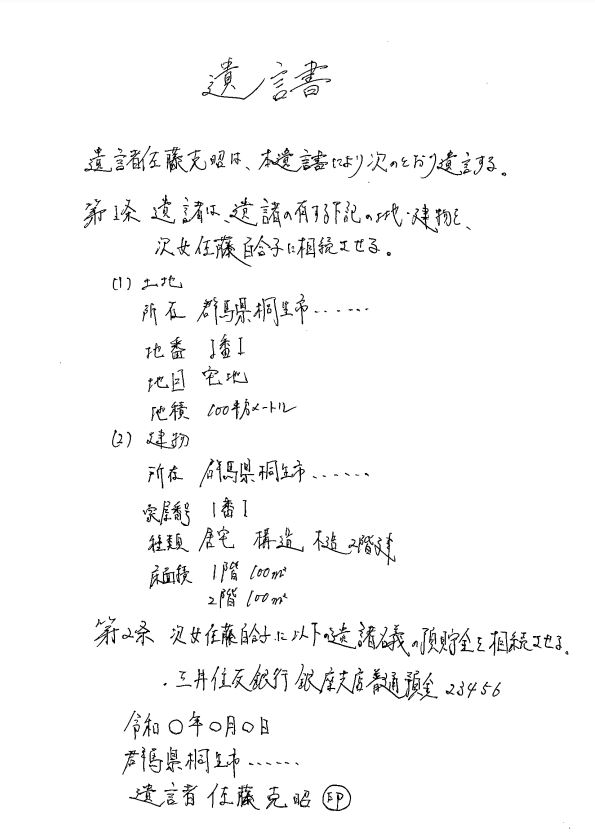 遺言書
遺言者佐藤克昭は、本遺言書により次のとおり遺言する。
第1条 遺言者は、遺言者の有する下記の土地・建物を、
次女佐藤百合子に相続させる。
(1) 土地
所在 群馬県桐生市‥‥‥
地番 1番1
地目 宅地
地積 100平方メートル
(2) 建物
所在 群馬県桐生市‥‥‥
家屋番号 1番1
種類 居宅 構造 木造2階建
床面積 1階 100㎡
2階 100㎡
第2条 次女佐藤百合子に以下の遺言者名義の預貯金を相続させる。
・三井住友銀行 銀座支店 普通預金 23456
令和〇年〇月〇日
群馬県桐生市‥‥‥
遺言者 佐藤克昭 印